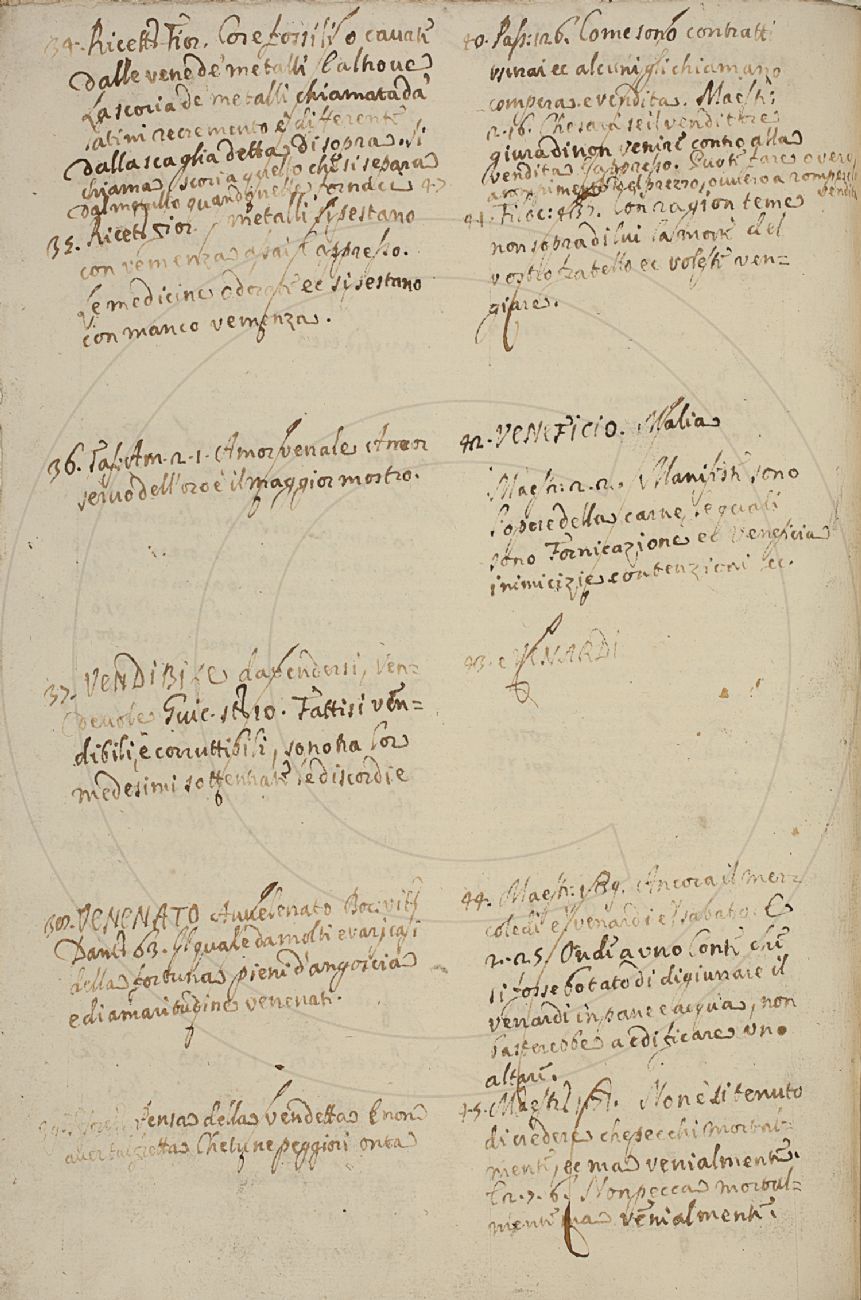 34. Ricett. Fior. Cose fossili o cavate
dalle vene de' metalli E altrove
La scoria de metalli chiamata da
latini recremento è differente
dalla scaglia detta di sopra. si
chiama scoria quello che si separa
dal metallo quando nelle fornaci
35. Ricett. Fior. metalli si pestano
con vemenza assai E appresso.
Le medicine odorate ec si pestano
con manco vemenza.
36. Tass. Am. 2. 1. Amor venale Amor
servo dell'oro è il maggior mostro.
37. VENDIBILE da vendersi, Ven-
devole Guic. st. 10. Fattisi ven=
dibili, e corruttibili, sono ha lor
medesimi sottentrate le discordie
38. VENENATO Avvelenato Bocc. vit.
Dant. 63. Il quale da molti e varj casi
della fortuna pieni d'angoscia
e di amaritudine venenati.
Pensa della vendetta E non
aver tal fretta Che tu ne peggiori onta
40. Pass: 126. Come sono contratti
usurai ec alcuni gli chiamano
compera e vendita. Maestr:
2. 16. Che sarà se il venditore
giura di non venire contro alla
vendita E appresso. Puote fare overo
a compimento del prezzo, ovvero a rompere la
vendita
41. Filoc: 437. Con ragion teme
non sopra di lui la morte del
vostro fratello ec voleste ven=
giare.
42. VENEFICIO. Malia
Maestr: 2. 2. Manifeste sono
l'opere della carne, le quali
sono Fornicazione ec Veneficia
inimicizie contenzioni ec.
43. e VENARDI
44. Maestr: 1. 89. Ancora il mer-
coledi e 'l venardi e 'l sabato. E
2. 25. Onde a uno Conte che
si fosse botato di digiunare il
venardi in pane e acqua, non
basterebbe a edificare uno
altare.
45. Maestr. Non è si tenuto
di credere che pecchi mortal-
mente, ec ma venialmente.
E 2. 7. 6. Non pecca mortal=
mente ma venialmente.